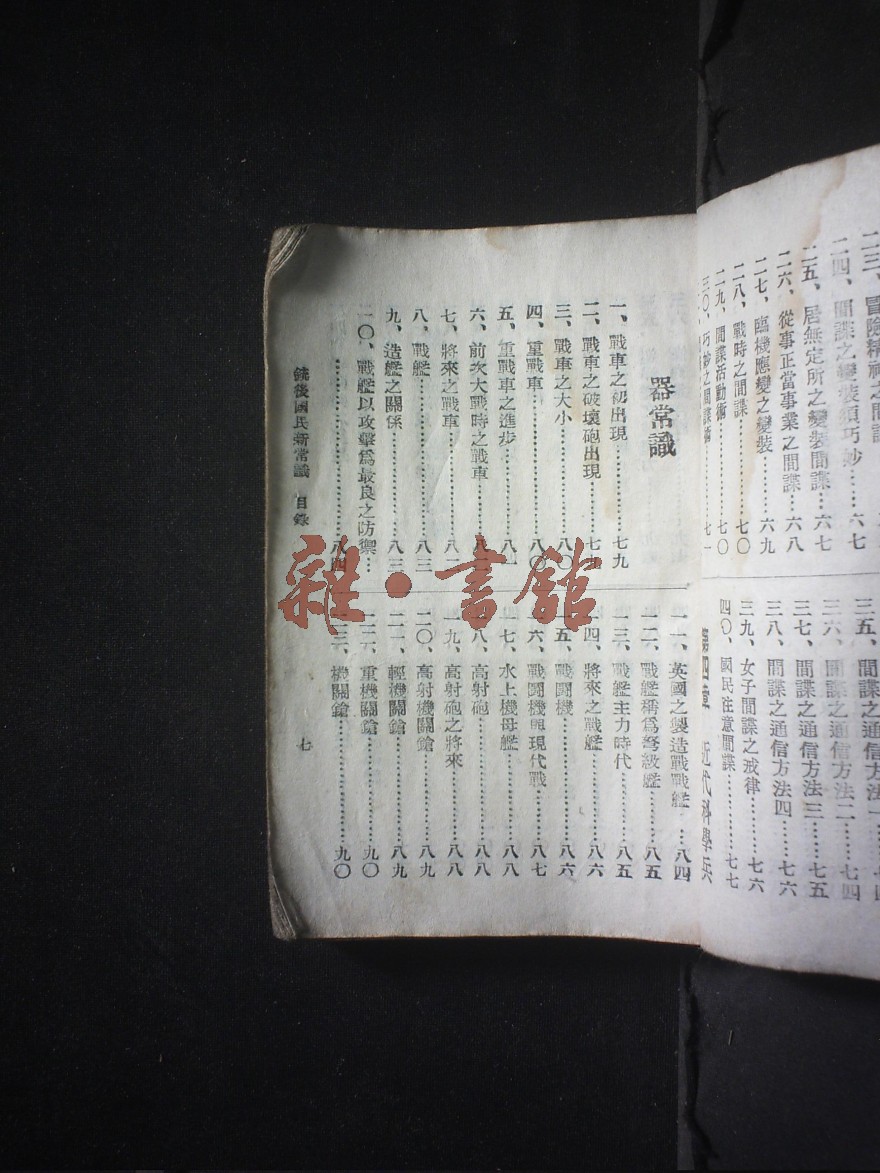 二三、冒險精神之間諜
二四、間諜之變裝須巧妙……六七
二五、居無定所之變裝間諜……六七
二六、從事正當事業之間諜……六八
二七、臨機應變之變裝……六九
二八、戰時之間諜……七〇
二九、間諜活動術……七〇
三〇、巧妙之間諜術……七一
三五、間諜之通信方法一……七四
三六、間諜之通信方法二……七四
三七、間諜之通信方法三……七五
三八、間諜之通信方法四……七六
三九、女子間諜之戒律……七六
四〇、國民注意間諜……七七
第四章 近代科學兵
器常識
一、戰車之初出現……七九
二、戰車之破壞砲出現……七九
三、戰車之大小……八〇
四、重戰車……八〇
五、重戰車之進步……八一
六、前次大戰時之戰車……八二
七、將來之戰車……八二
八、戰艦……八三
九、造艦之關係……八三
一〇、戰艦以攻擊爲最良之防禦…
……八四
一一、英國之製造戰艦……八四
一二、戰艦稱爲弩級艦……八五
一三、戰艦主力時代……八五
一四、將來之戰艦……八六
一五、戰鬪機……八六
一六、戰鬪機與現代戰……八七
一七、水上機母艦……八八
一八、高射砲……八八
一九、高射砲之將來……八八
二〇、高射機關鎗……八九
二一、輕機關鎗……八九
二二、重機關鎗……九〇
二三、機關鎗……九〇
銃後國民新常識 目錄
七
雜·書館